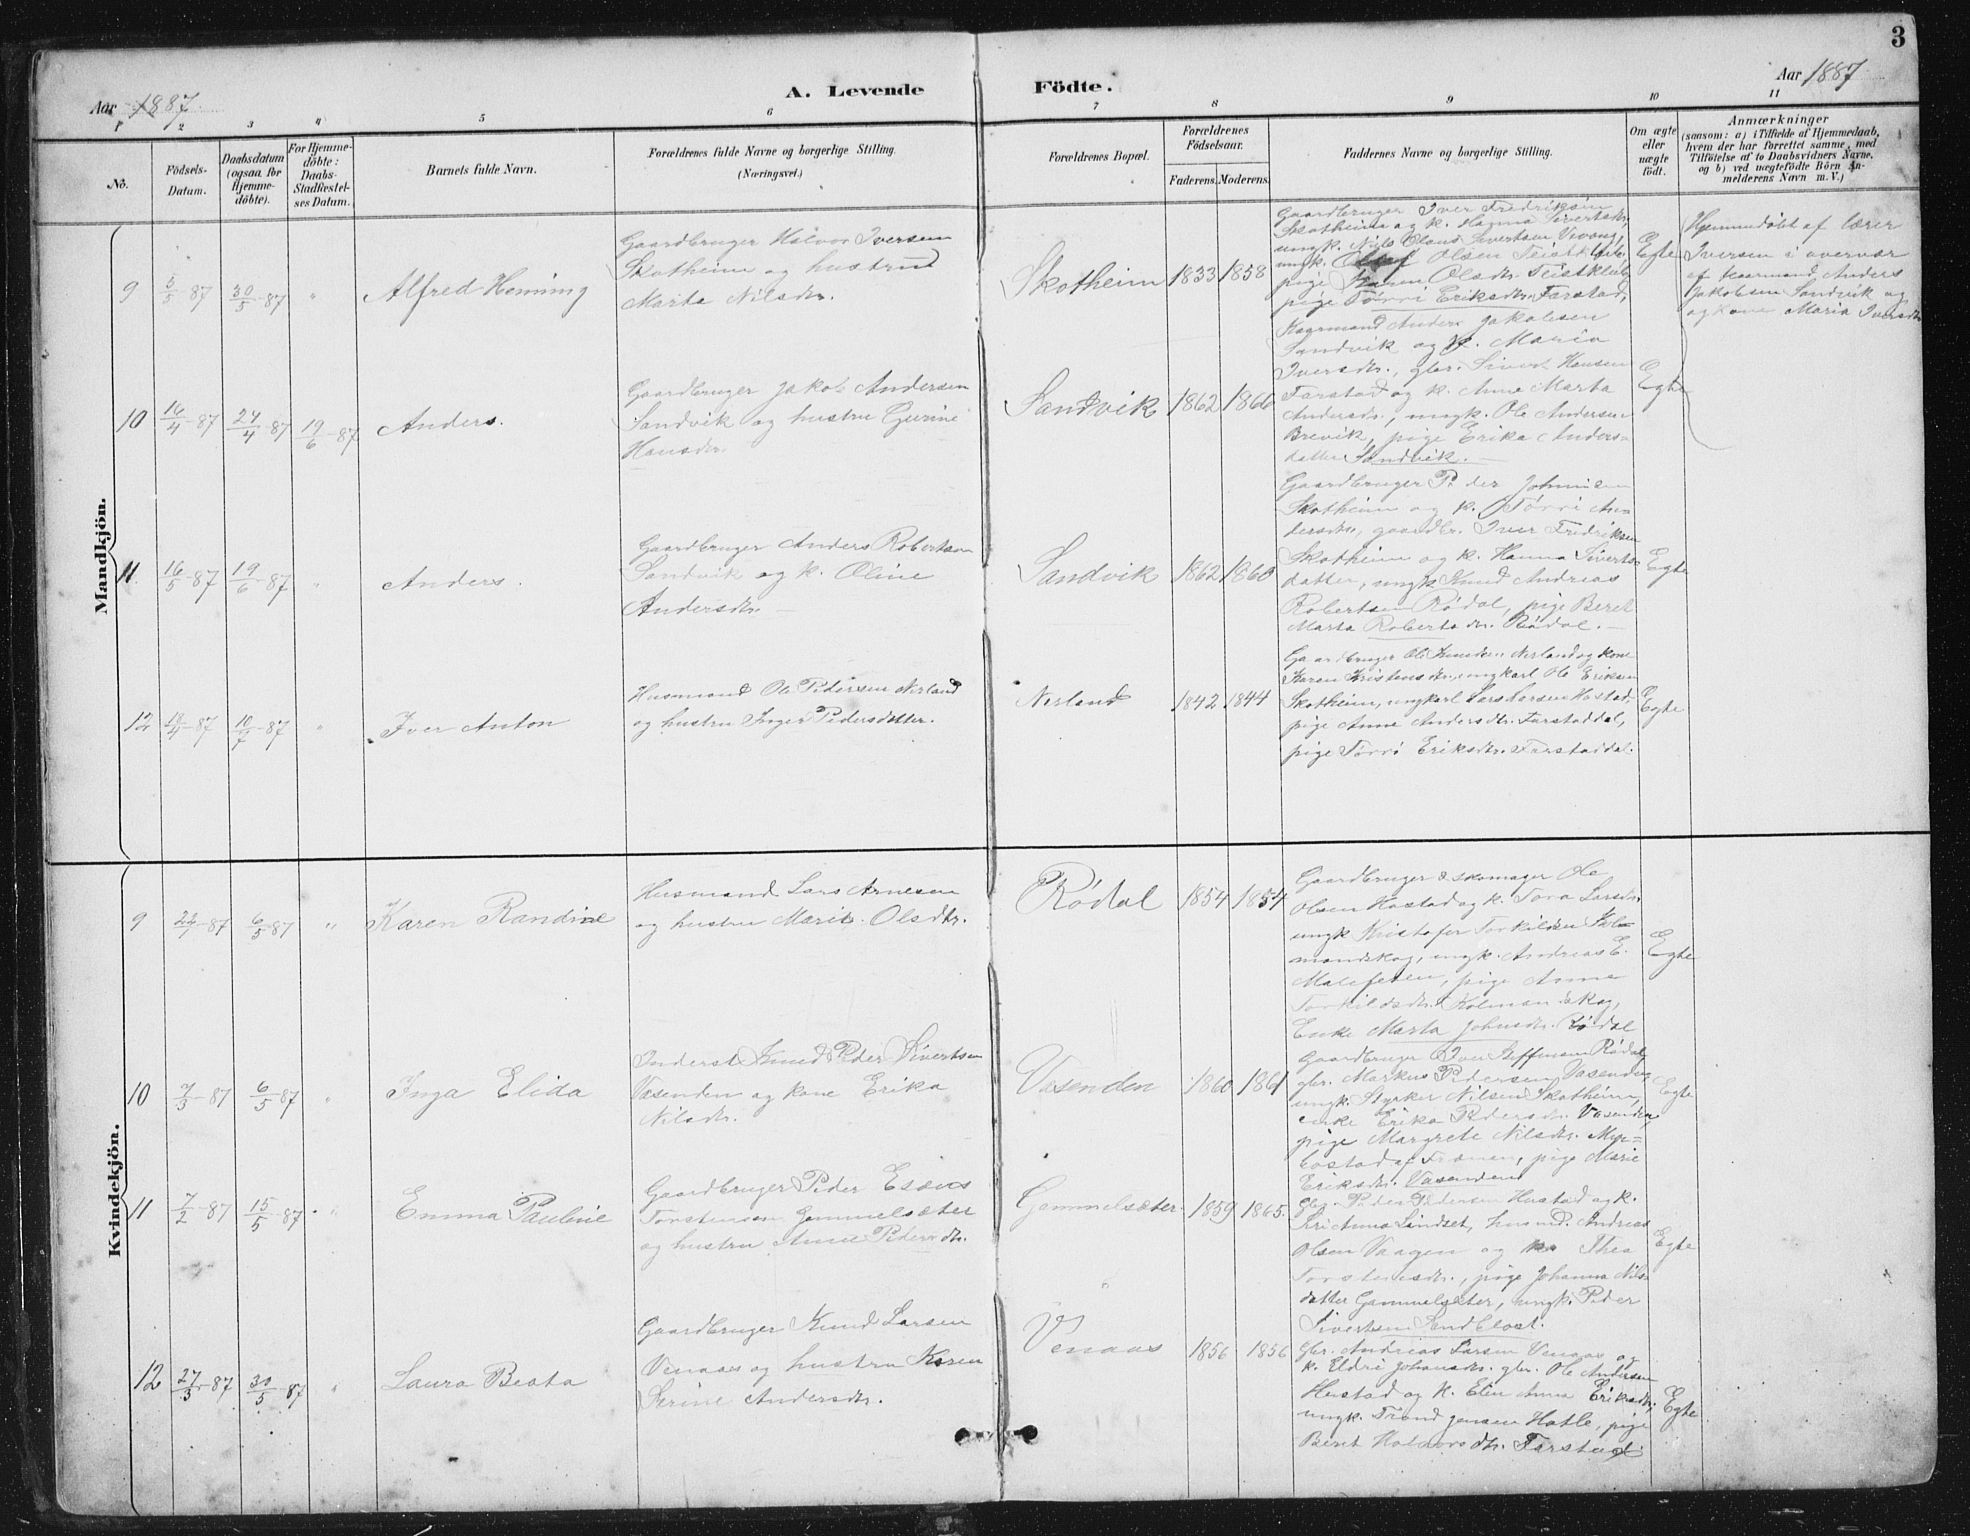 3
Aar 1887
A. Levende
Födte.
Aar 1887
1 2 3 4 5 6 7 8 9 10 11
No.
Födsels-
Datum.
Daabsdatum
(ogsaa for
Hjemme-
döbte).
For Hjemme-
döbte:
Daabs-
Stadfæstel-
ses Datum.
Barnets fulde Navn.
Forældrenes fulde Navne og borgerlige Stilling.
(Næringsvei.)
Forældrenes Bopæl.
Forældrenes
Födselsaar.
Faderens. Moderens.
Faddernes Navne og borgerlige Stilling.
Om ægte
eller
uægte
födt.
Anmærkninger
(saasom: a) i Tilfælde af Hjemmedaab,
hvem der har forrettet samme, med
Tilföielse af to Daabsvidners Navne,
og b) ved uægtefödte Börn An-
melderens Navn m. V.)
Mandkjön.
9
5/5-87
30/5-87
"
Alfred Henning
Gaardbruger Halvor Iversen
Skotheim og hustru
Marta Nilsdtr.
Skotheim
1833 1858
Gaardbruger Iver Fredriksen
Skotheim og k. Hanna Sivertsdtr,
ungk. Nils Olaus Sivertsen
ungk. Olsen Teistklub,
pige Karen Olsdtr. Teistklub,
pige Törri Eriksdtr. Farstad,
Egte
Hjemmedöbt af lærer
Iversen i overvær
af Kaarmand Anders
Jakobsen Sandvik og
og kone Maria Iversdtr
10
16/4-87
24/4-87
19/6-87
Anders.
Gaardbruger Jakob Andersen
Sandvik og hustru Gurine
Hansdtr.
Sandvik
1862 1866
Kaarmand Anders Jakobsen
Sandvik og k. Maria
Iversdtr., gbr. Sivert Hansen
Farstad og k. Anne Marta
Andersdtr., ungk. Ole Andersen
Brevik, pige Erika Anders-
datter Sandvik.
Egte
11
16/5-87
19/6-87
"
Anders.
Gaardbruger Anders Robertsen
Sandvik og k. Oline
Andersdtr.
Sandvik
1862 1860
Gaardbruger Peder Johnnisen
Skotheim og k. Törri An-
dersdtr., gaardbr. Iver Fredriksen
Skotheim og k. Hanna Siverts-
datter, ungk Knud Andreas
Robertsen Rödal, pige Beret
Marta Robertsdtr. Rödal.
Egte
12
10/4-87
10/7-87
"
Iver Anton
Husmand Ole Pedersen Nerland
og hustru Inger Pedersdatter.
Nerland
1842 1844
Gaardbruger Ole Knudsen Nerland og kone
Karen Kristensdtr., ungkarl Ole Eriksen
Skotheim, ungkarl Lars Larsen Hostad,
pige Anne Andersdtr. Farstaddal,
pige Törri Eriksdtr. Farstaddal.
Egte
Kvindekjön.
9
6/5-87
"
Karen Randine
Husmand Lars Arnesen
og hustru Marit Olsdtr.
Rödal
1854 1854
Gaardbruger & skomager Ole
Olsen Hostad og k. Tora Larsdtr.
ungk Kristofer Torkildsen Kol-
mandskog, ungk. Andreas E.
Malefeten, pige Anna
Torkildsdtr. Kolmanskog,
Enke Marta Johnsdtr. Rödal
Egte
10
7/3-87
6/5-87
"
Inga Elida
Inderst Knud Peder Sivertsen
Vasenden og kone Erika
Nilsdtr.
Vasenden
1860 1861
Gaardbruger Iver Steffensen Rödal,
gbr. Markus Pedersen Vasenden,
ungk. Styrker Nilsen Skotheim,
enke Erika Pedersdtr. Vasenden,
pige Margrete Nilsdtr. Myr-
bostad af Frænen, pige Marie
Eriksdtr. Vasenden
Egte
11
7/2-87
15/5-87
"
Emma Pauline
Gaardbruger Peder Esaus
Torstensen Gammelsæter
og hustru Anne Pedersdtr.
Gammelsæter.
1859 1865.
Gbr. Peder Pedersen Hustad og k.
Anna Lindset, husmd. Andreas
Olsen Vaagen og k. Thea
Torstensdtr., pige Johanna Nils-
datter Gammelsæter, ungk. Peder
Sivertsen Sandblost.
Egte
12
27/3-87
30/5-87
"
Laura Beata
Gaardbruger Knud Larsen
Venaas og hustru Karen
Serine Andersdtr.
Venaas
1856 1856
Gbr. Andreas Larsen Venaas og
k. Eldri Johansdtr. gbr. Ole Andersen
Hustad og k. Elen Anna Eriksdtr,
ungk. Trond Jensen Hatle, pige
Beret Halvorsdtr. Farstad
Egte